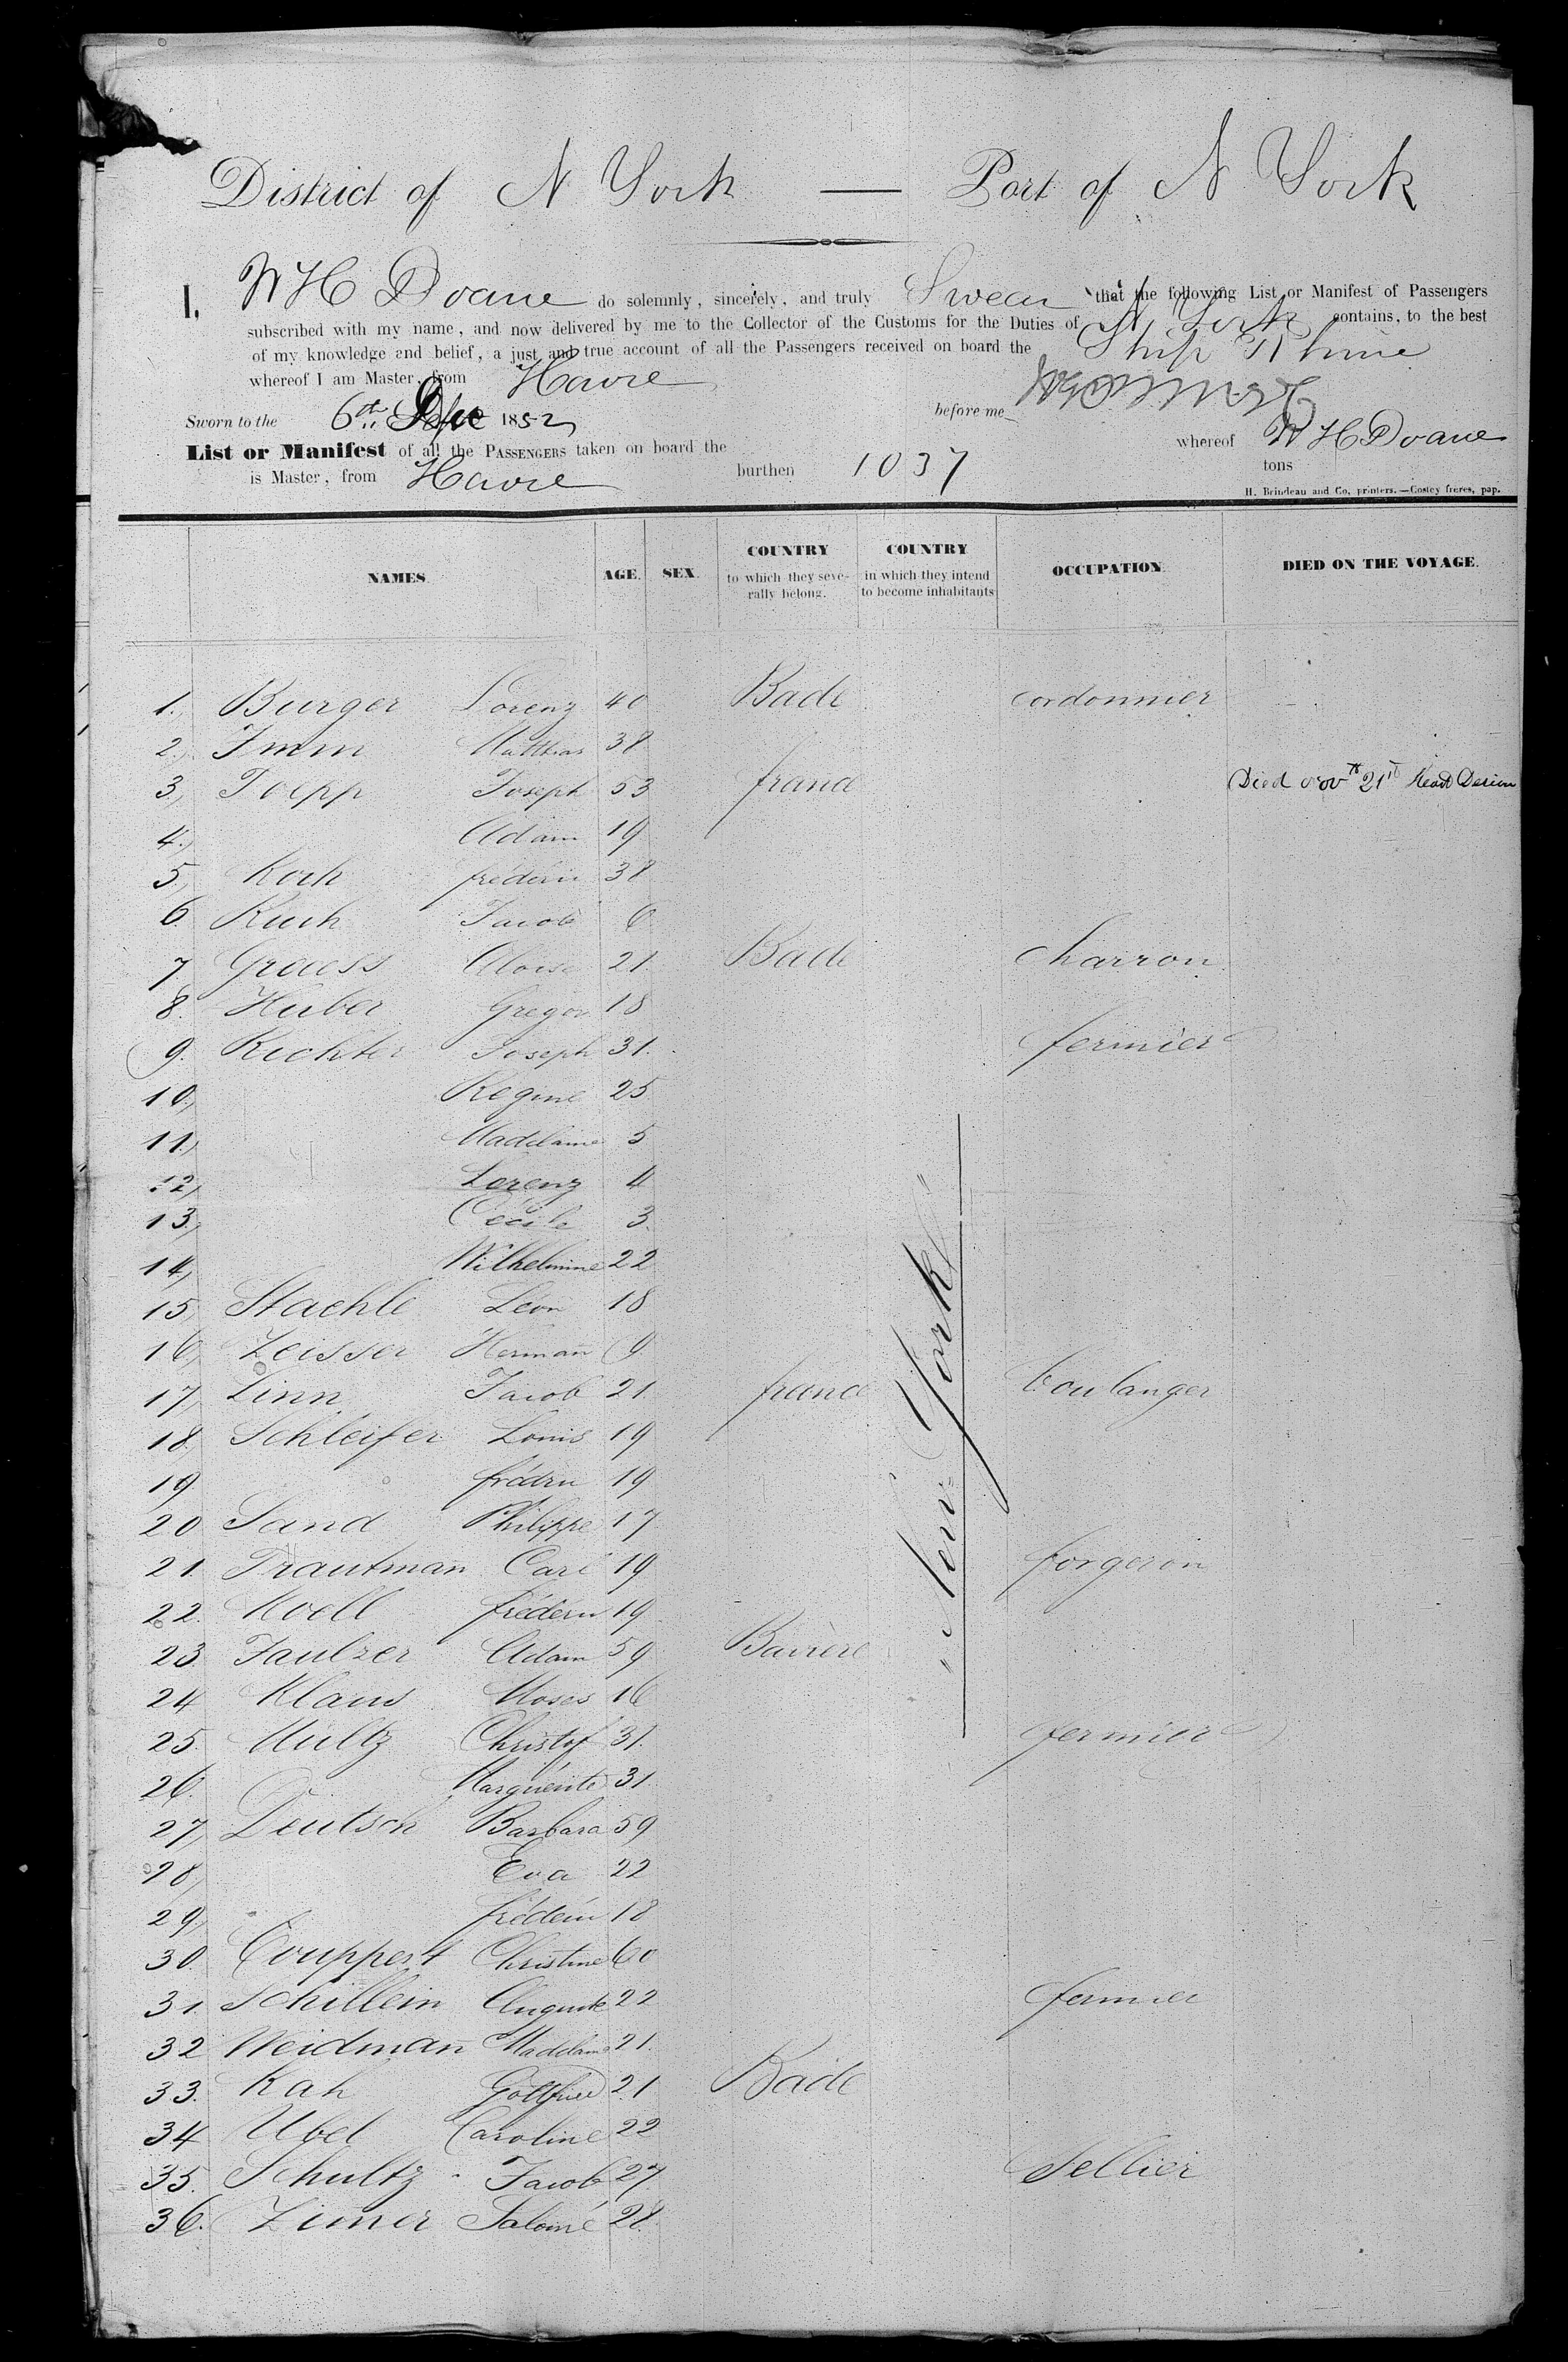 District of N York — Port of N York
I, W H Doane do solemnly, sincerely, and truly Swear that the following List or Manifest of Passengers
subscribed with my name, and now delivered by me to the Collector of the Customs for the Duties of N York contains, to the best
of my knowledge and belief, a just and true account of all the Passengers received on board the Ship Rhine
whereof I am Master, from Havre
Sworn to the 6th 1852 before me
List or Manifest of all the PASSENGERS taken on board the whereof W H Doane
is Master, from Havre burthen 1037 tons
H. Brindeau and Co, printers. — Costey frères, pap.
NAMES. AGE. SEX. COUNTRY to which they severally belong. COUNTRY in which they intend to become inhabitants OCCUPATION. DIED ON THE VOYAGE.
1. Burger Lorenz 40 Bade cordonnier
2. Imm Matthias 38
3. Joseph 53 france Died Nov 21st
4. Adam 19
5. Koch frédéric 38
6. Ruch Jacob 6
7. Graess Aloise 21 Bade charron
8. Huber Gregor 18
9. Richter Joseph 31. fermier
10. Regine 25
11. Madelaine 5
12, Lorenz 4
13, Cécile 3.
14, Wilhelmine 22
15, Staehle Léon 18
16, Zeisser Hermañ 9
17, Linn Jacob 21 france boulanger
18. Schleifer Louis 19
19 frédric 19
20 Sand Philippe 17
21. Trautmañ Carl 19 forgeron
22. Koell frédéric 19
23. Adam 59 Bavière
24 Klaus Moses 16
25. Mültz Christof 31. fermier
26. Marguérite 31
27, Deutsch Barbara 59
28, Eva 22
29, frédéric 18
30 Couppert Christine 60
31. Schillein Auguste 22 fermier
32 Weidmañ Madelaine 21.
33. Kah Gottfried 21 Bade
34 Ubel Caroline 22
35. Schultz Jacob 27 Sellier
36. Zimer Salomé 28
" New York "